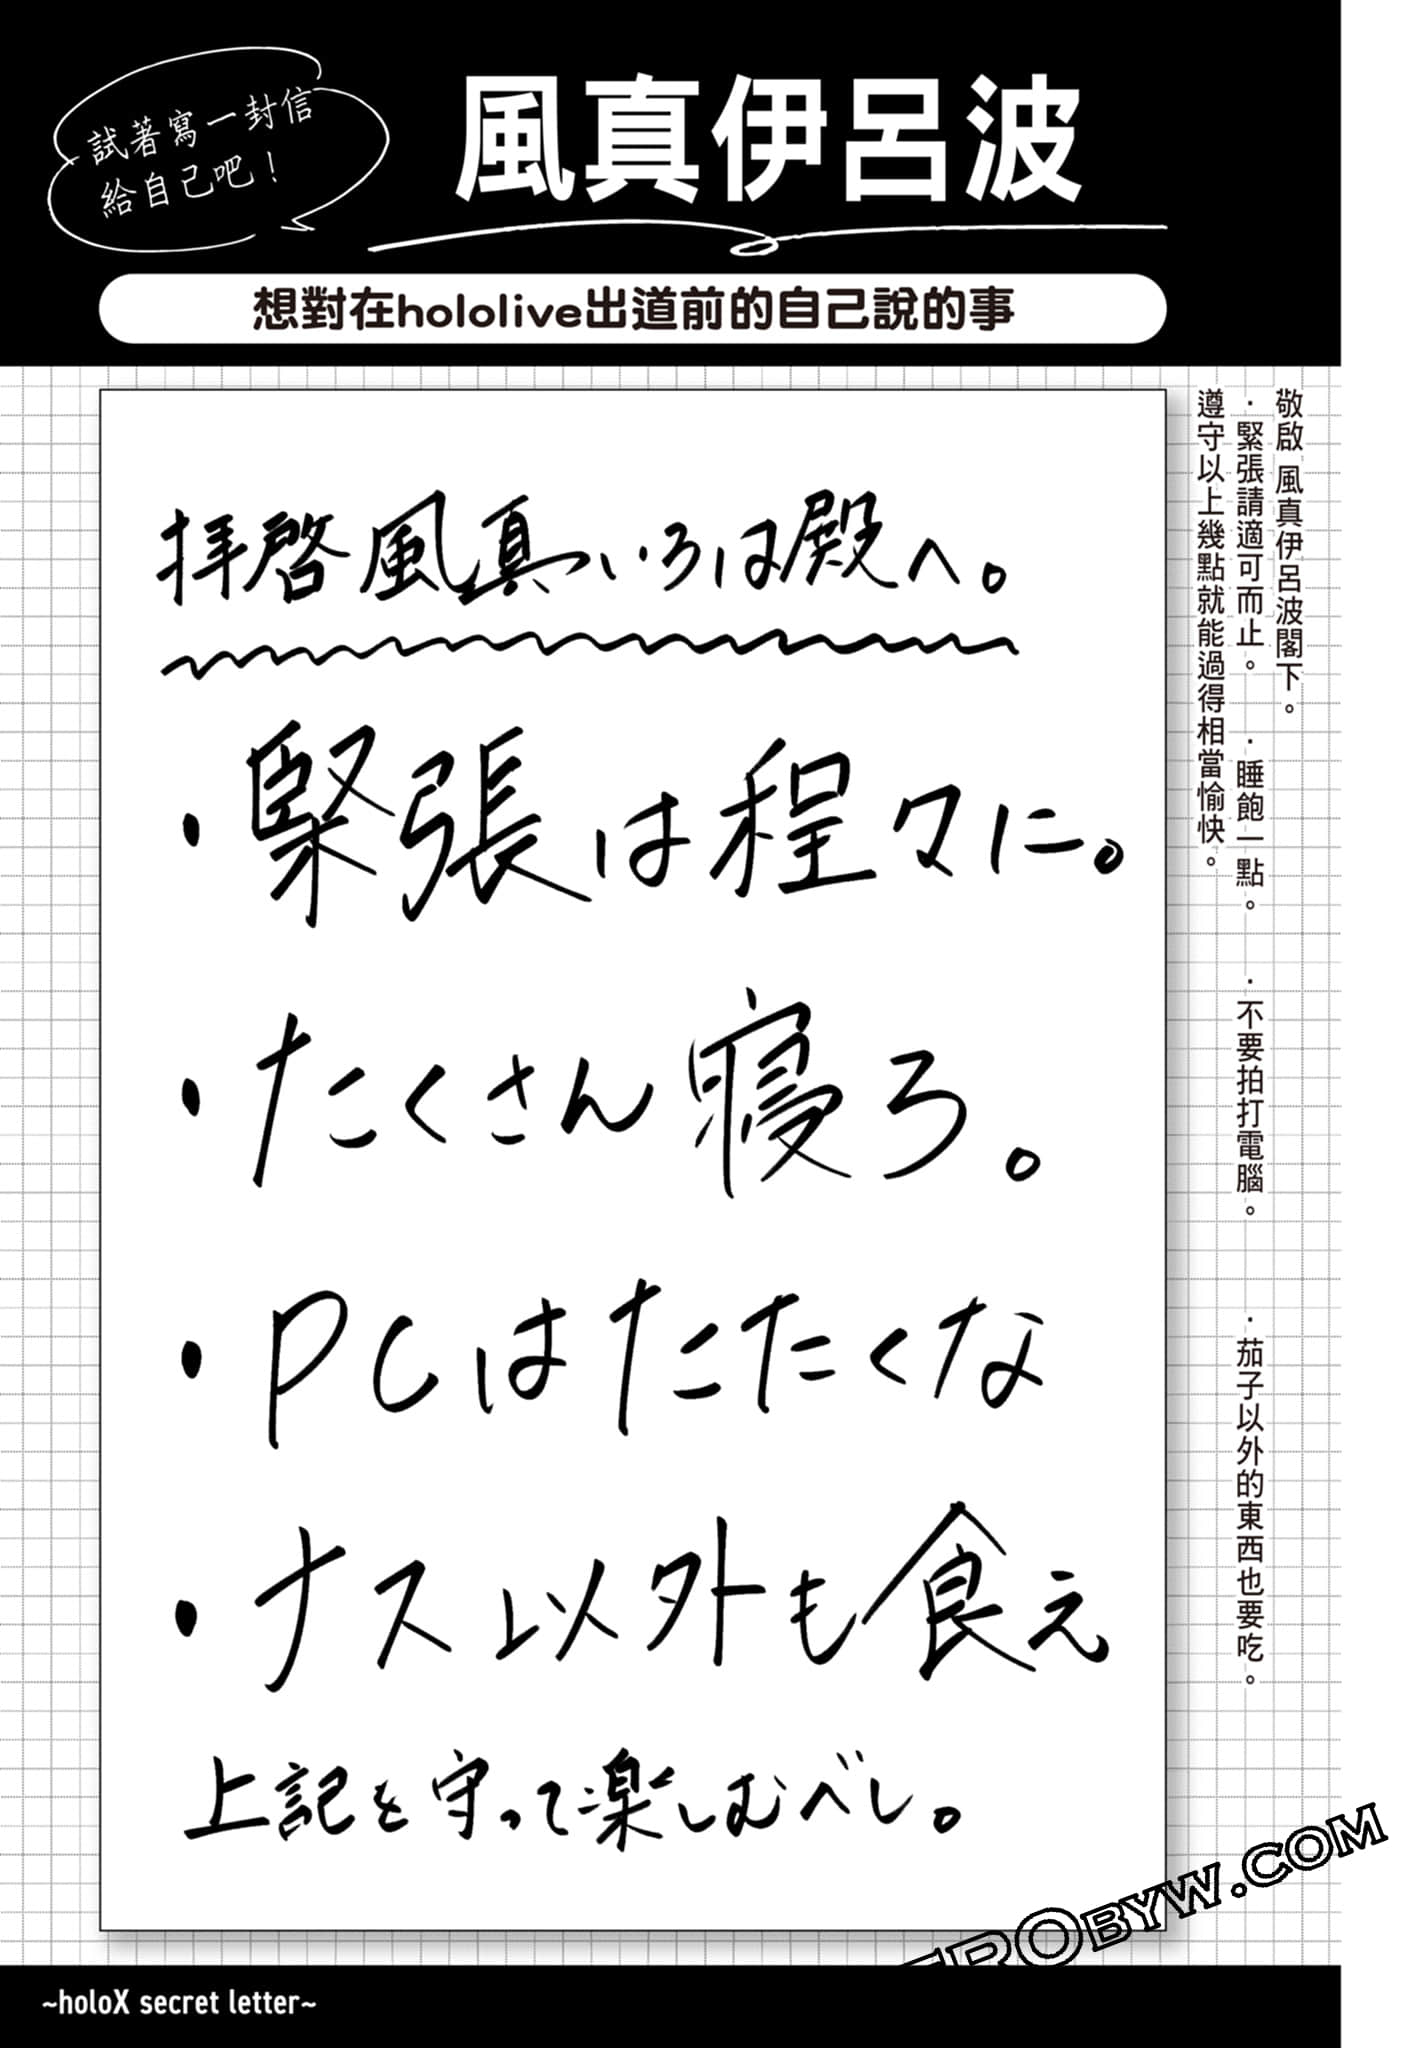 試著寫一封信
給自己吧！
風真伊呂波
想對在hololive出道前的自己說的事
敬啟 風真伊呂波閣下。
・緊張請適可而止。 ・睡飽一點。 ・不要拍打電腦。 ・茄子以外的東西也要吃。
遵守以上幾點就能過得相當愉快。
拝啓風真いろは殿へ。
・緊張は程々に。
・たくさん寝ろ。
・PCはたたくな
・ナス以外も食え
上記を守って楽しむべし。
~holoX secret letter~